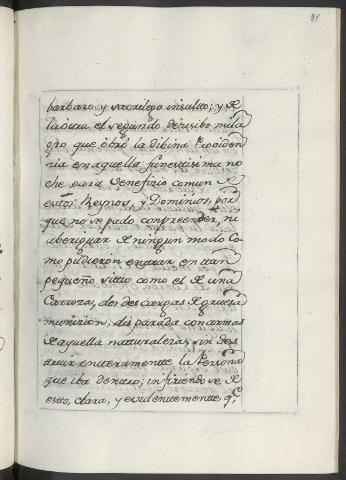 81
barbaro y sacrilego insulto; y de
la otra el segundo decisibo mila
gro que obró la dibina Providen
zia en aquella funestisima no
che para Beneficio comun de
estos Reynos, y Dominios, por
que no se pudo conpreender, ni
aberiguar de ningun modo Co
mo pudieron entrar en tan
pequeño sitio como el de una
Carroza, dos descargas de gruesa
munizion, disparada con armas
de aquella naturaleza, sin des
truir enteramente la Persona
que iba dentro; infiriendose de
esto, clara, y evidentemente q.e